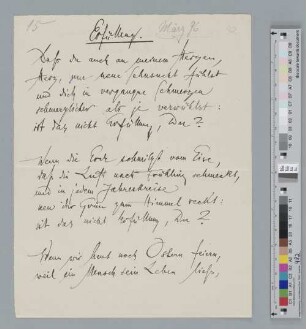 15
Erfüllung.
März 96
Daß du auch an meinem Herzen,
Herz, nur neue Sehnsucht fühlst
und dich in vergangne Schmerzen
schmerzlicher als je verwühlst:
ist das nicht Erfüllung, Du?
Wenn die Erde schmilzt vom Eise,
daß die Luft nach Frühling schmeckt,
und in jedem Jahreskreise
neu ihr Grün zum Himmel reckt:
ist das nicht Erfüllung, Du?
Wenn wir heut noch Ostern feiern,
weil ein Mensch sein Leben ließ,